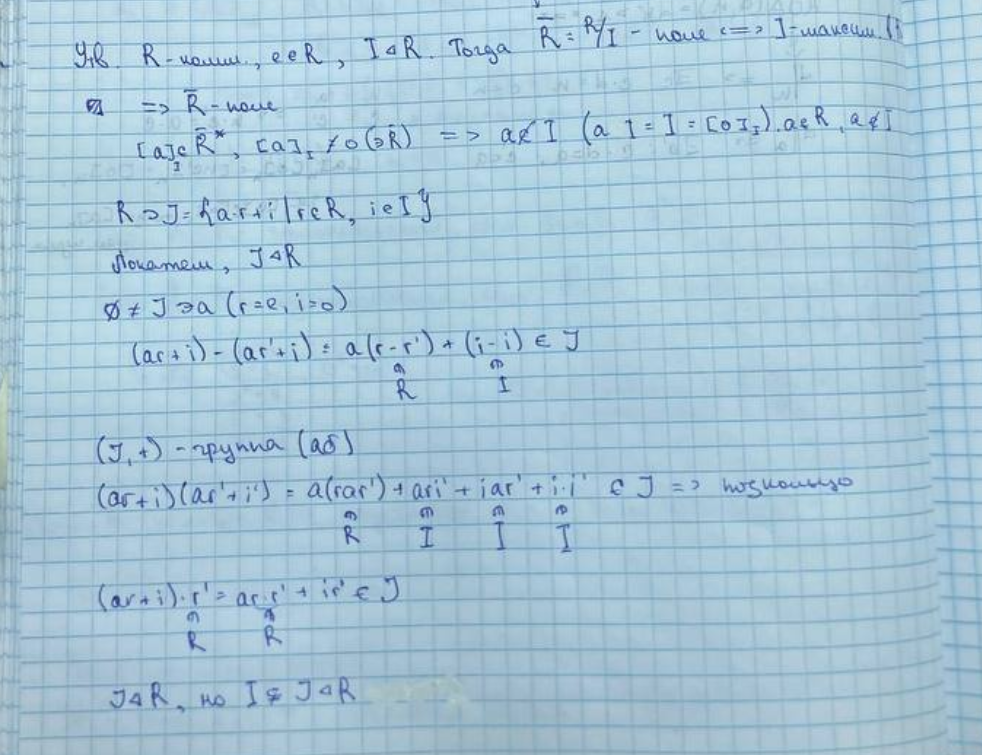 Утв. R-комм., e∈R, I⊲R. Тогда R̄ = R/I - поле <=> I-максим.
=> R̄ - поле
[a]_I ∈ R̄*, [a]_I ≠ 0 (∋R̄) => a∉I (a I = I = [0]_I). a∈R, a∉I
R ⊃ J = {a·r+i | r∈R, i∈I}
Покажем, J⊲R
∅ ≠ J ∋ a (r=e, i=0)
(ar+i) - (ar'+i) = a(r-r') + (i-i) ∈ J
R I
(J, +) - группа (аб)
(ar+i)(ar'+i') = a(rar') + ari' + iar' + i·i' ∈ J => подкольцо
R I I I
(ar+i)·r' = ar·r' + ir' ∈ J
R R
J⊲R, но I ⊊ J⊲R